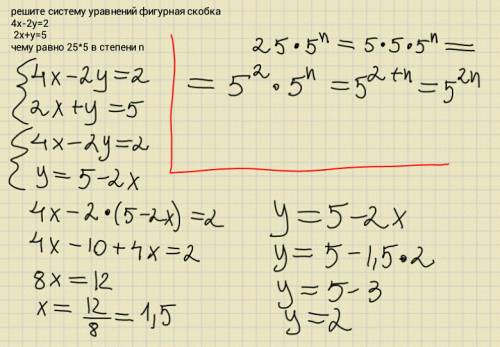 решите систему уравнений фигурная скобка
4x-2y=2
2x+y=5
чему равно 25*5 в степени n
4x-2y=2
2x+y=5
4x-2y=2
y=5-2x
4x-2•(5-2x)=2
4x-10+4x=2
8x=12
x=12/8=1,5
25•5ⁿ=5•5•5ⁿ=
=5²•5ⁿ=5²⁺ⁿ=5²ⁿ
y=5-2x
y=5-1,5•2
y=5-3
y=2